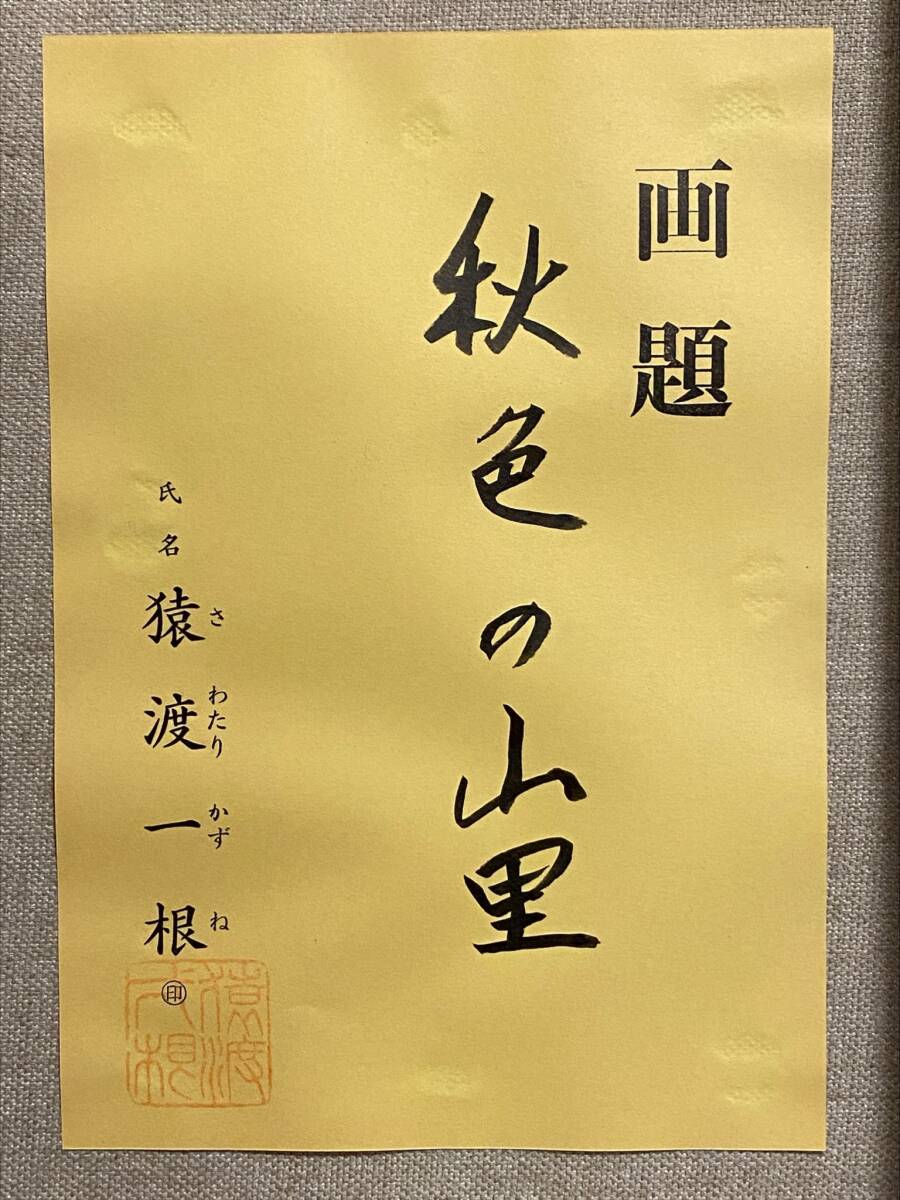 画題
秋色の山里
氏名 猿渡一根
さ わたり かず ね
㊞
猿渡